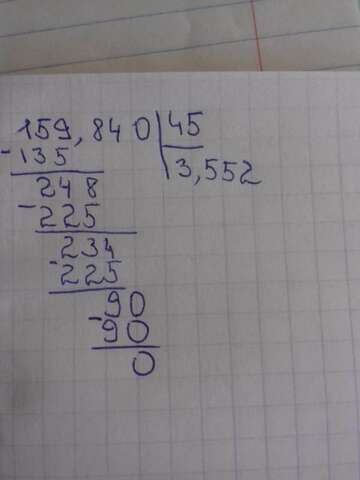 159,840 45
-135 3,552
248
-225
234
-225
90
-90
0